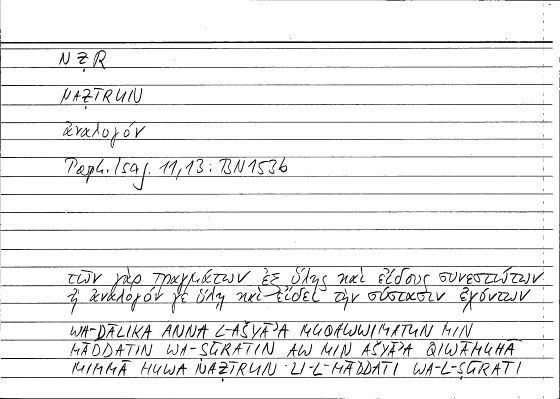 NẒR
NAẒĪRUN
ἀναλογόν
Porph. Isag. 11,13: BN153b
τῶν γὰρ πραγμάτων ἐξ ὕλης καὶ εἴδους συνεστώτων
ἢ ἀναλογόν γε ὕλῃ καὶ εἴδει τὴν σύστασιν ἐχόντων
WA-ḎĀLIKA ANNA L-AŠYĀʾA MUQAWWIMATUN MIN
MĀDDATIN WA-ṢŪRATIN AW MIN AŠYĀʾA QIWĀMUHĀ
MIMMĀ HUWA NAẒĪRUN LI-L-MĀDDATI WA-L-ṢŪRATI